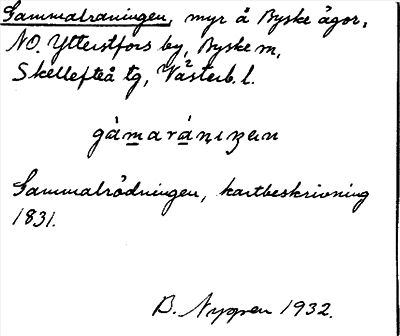 Gammalraningen, myr å Byske ägor,
NO. Ytterstfors by, Byske m,
Skellefteå tg, Västerb. l.
2
gàmaránıŋen
Gammalrödningen, kartbeskrivning
1831.
B. Nygren 1932.